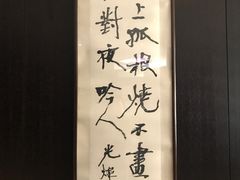 上孤根燒不盡
對夜吟人